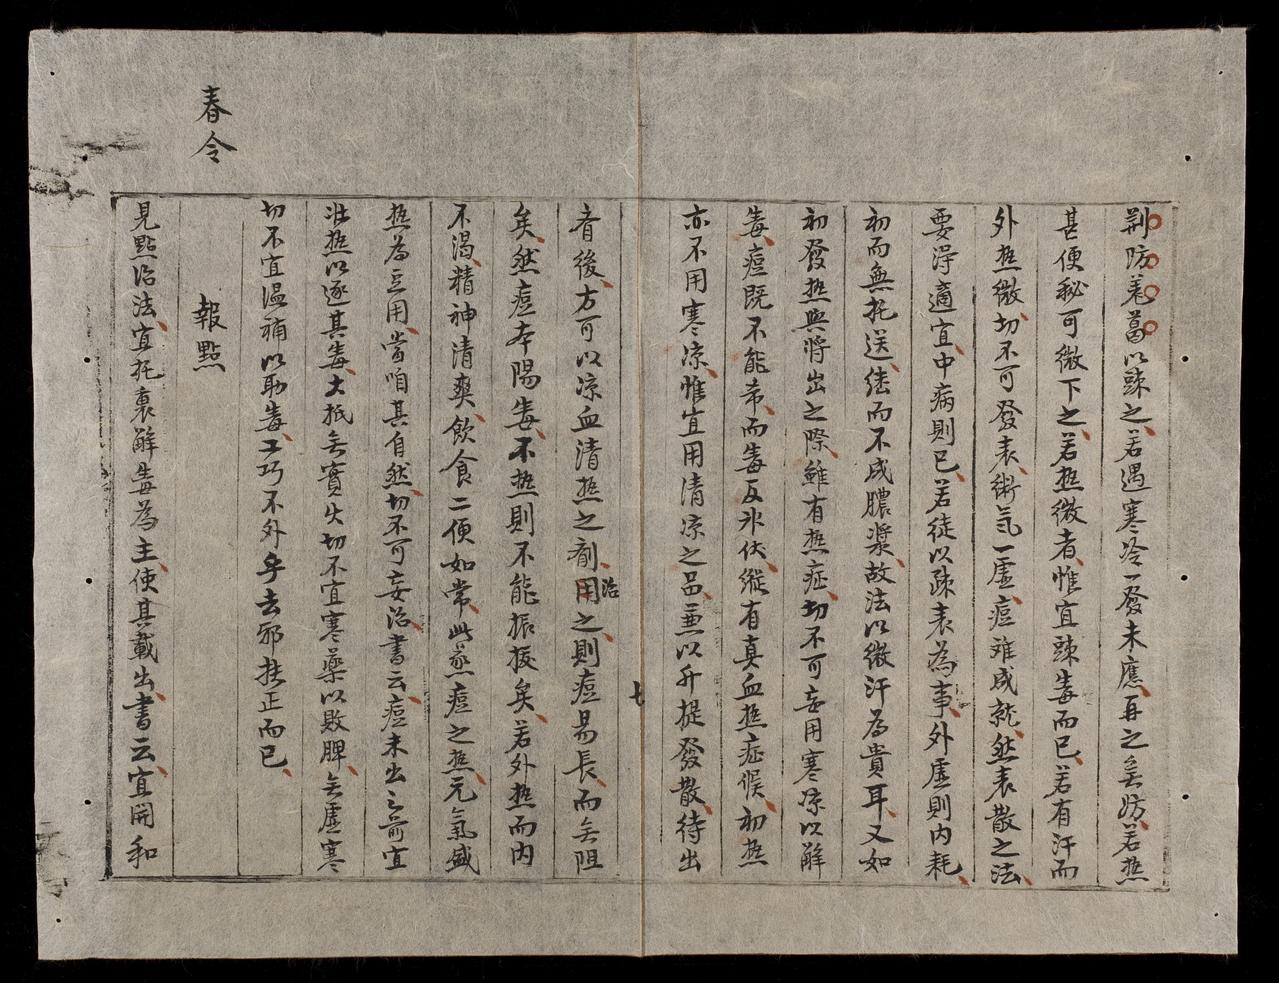 荆防羌葛以踈之若遇寒冷一發未應再之無妨若热
甚便秘可微下之若热微者惟宜踈毒而已若有汗而
外热微切不可發表衛氣一虛痘难成就然表散之法
要淂適宜中病則已若徒以疎表為事外虛則内耗
初而無托送継而不成膿漿故法以微汗為貴耳又如
初發热與將出之際雖有热症切不可妄用寒凉以解
毒痘既不能而毒反氷伏縱有真血热症候初热
亦不用寒凉惟宜用清凉之品兼以升提發散待出
七
者後方可以凉血清热之剤用之則痘易長而無阻
治
矣然痘本陽毒不热則不能振扳矣若外热而内
不渴精神清爽飲食二便如常此蒸痘之热元氣盛
热為豆用當咱其自然切不可妄治書云痘未出之前宜
壮热以逐其毒大抵無實火切不宜寒藥以敗脾無虛寒
切不宜温補以助毒工巧不外乎去邪扶正而已
報點
春令
見點治法宜托裏解毒為主使其載出書云宜開和